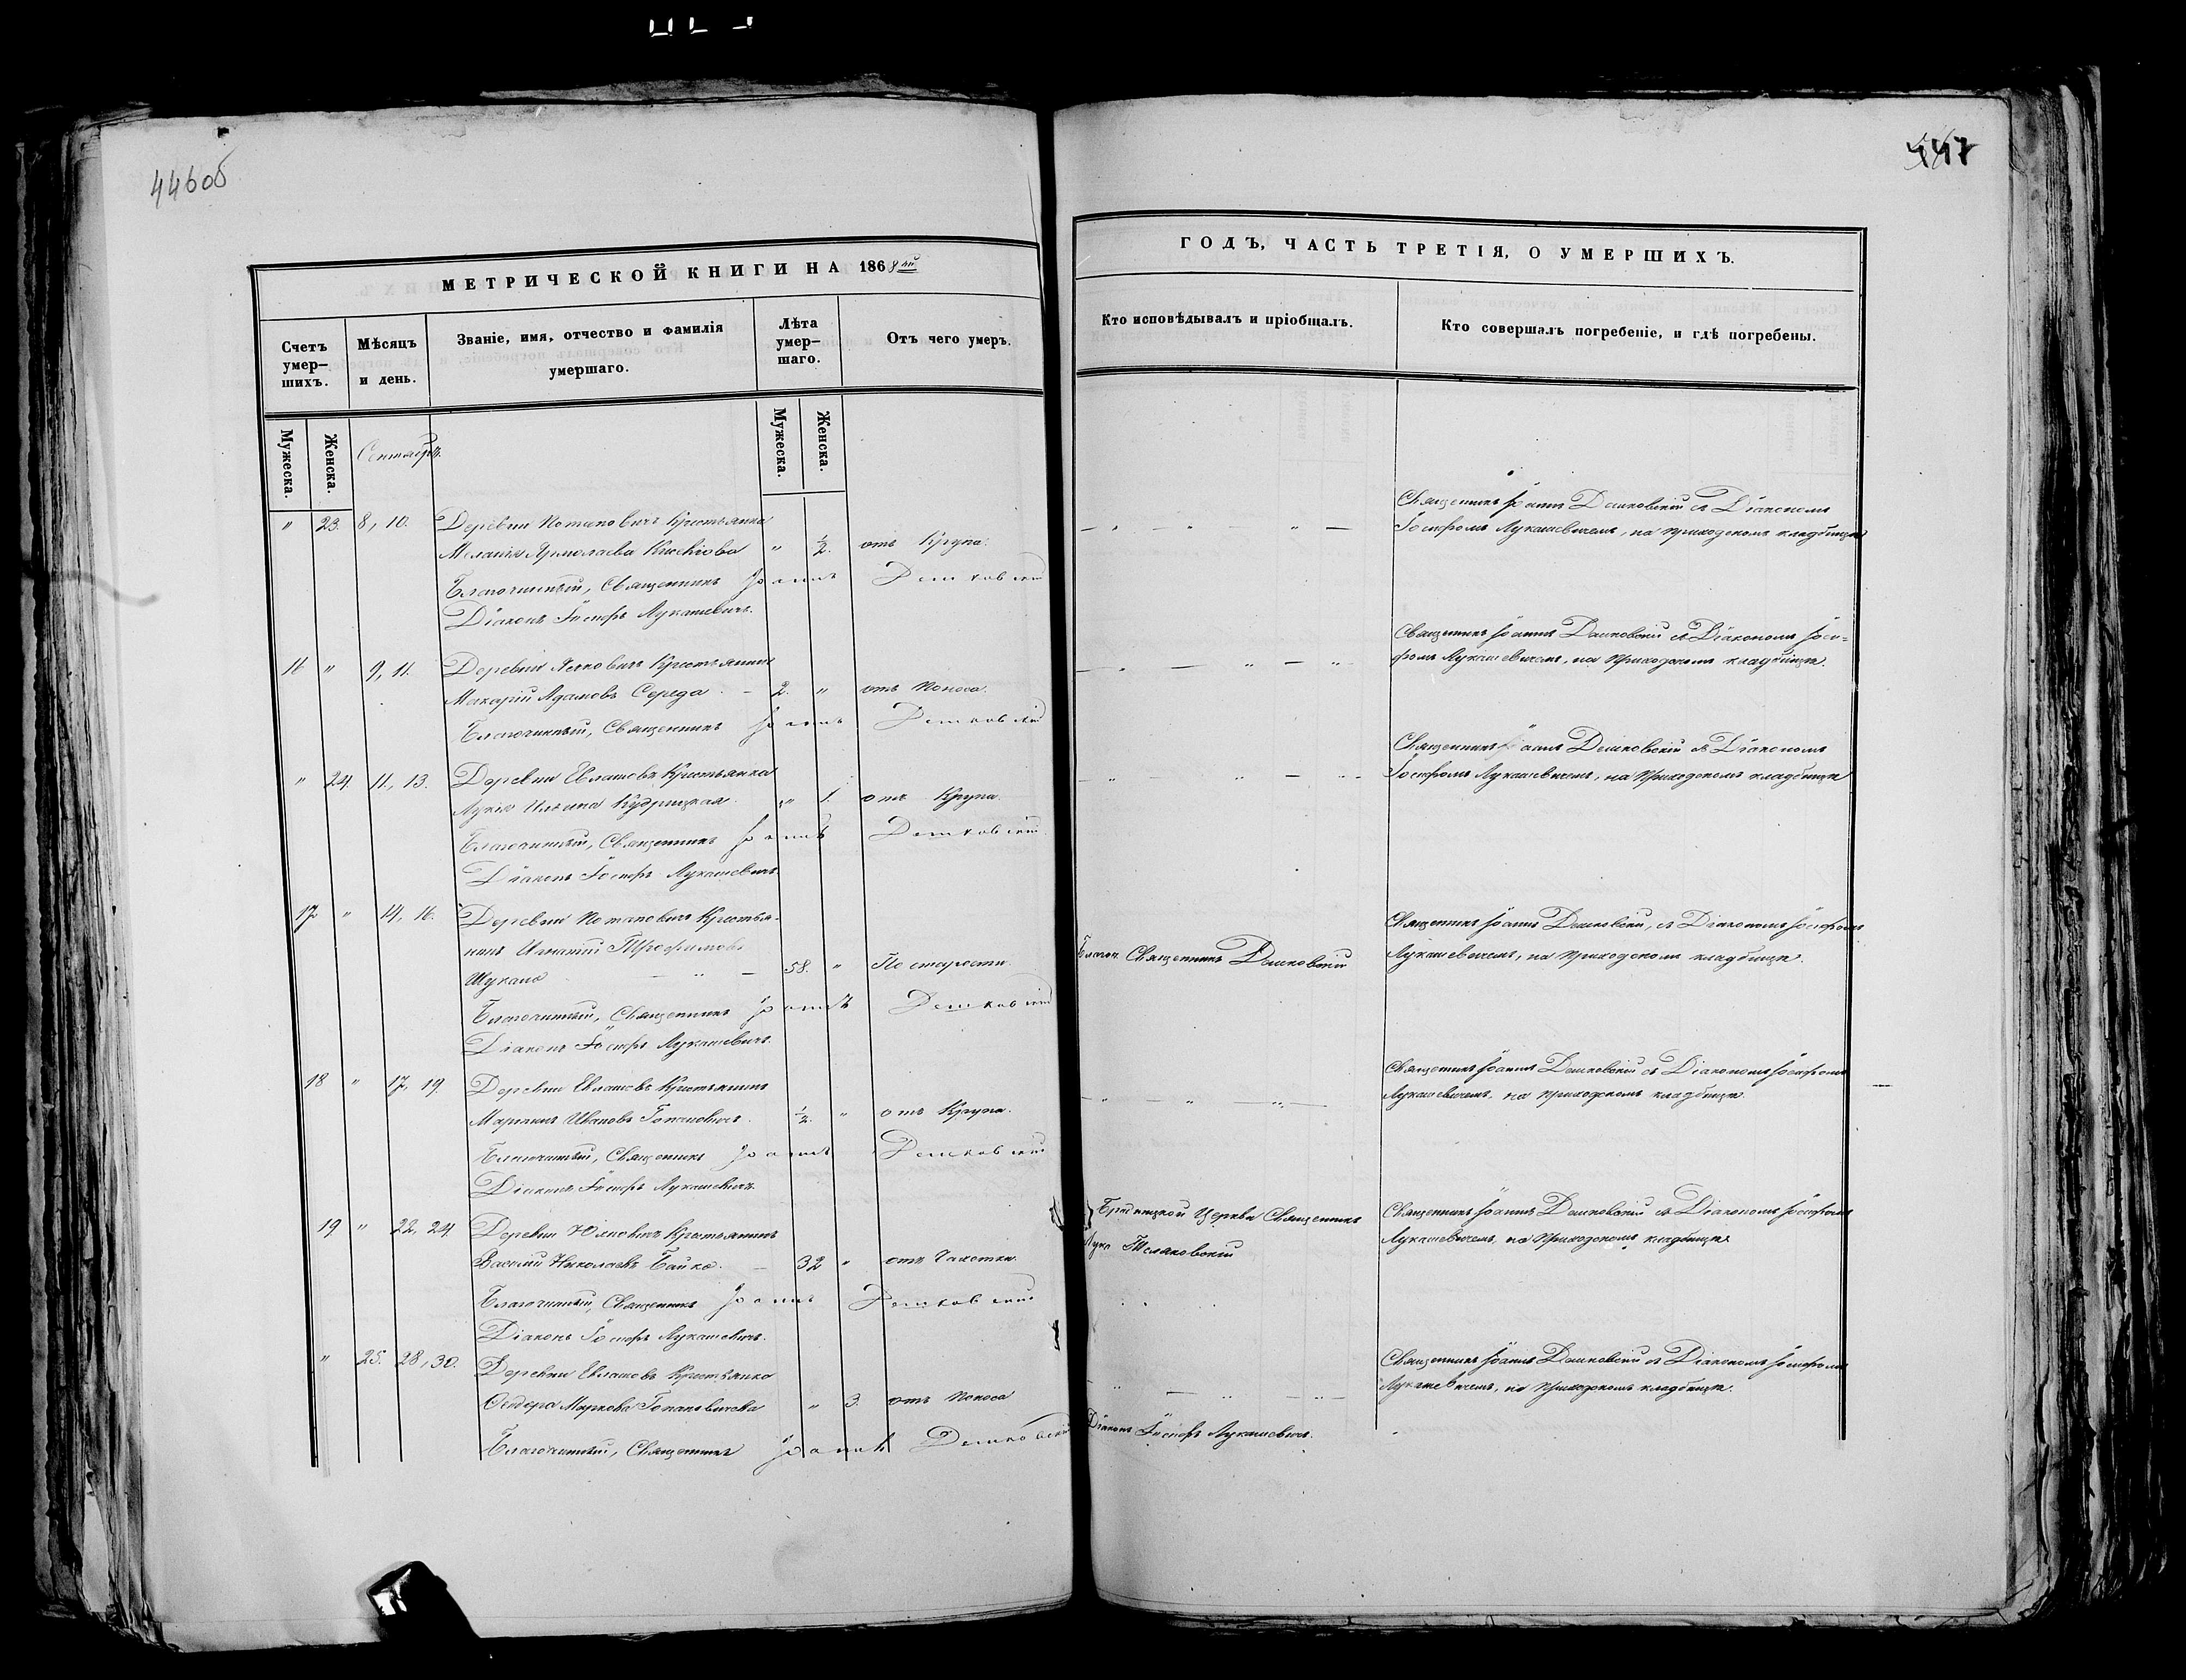 446об
447
МЕТРИЧЕСКОЙ КНИГИ НА 1868ый
ГОДЪ, ЧАСТЬ ТРЕТІЯ, О УМЕРШИХЪ.
Счетъ умер-
шихъ.
Мѣсяцъ
и день.
Званіе, имя, отчество и фамилія
умершаго.
Лѣта
умер-
шаго.
Отъ чего умеръ.
Кто исповѣдывалъ и пріобщалъ.
Кто совершалъ погребеніе, и гдѣ погребены.
Мужеска.
Женска.
Сентябрь.
Мужеска.
Женска.
" 23. 8, 10. Деревни Потаповичъ Крестьянка
Меланія Ярмолаева " ½. отъ Крупа.
Благочинный, Священникъ Іоаннъ Дешковскій
Діаконъ Іосифъ Лукашевичъ.
Священникъ Іоаннъ Дешковскій съ Діакономъ
Іосифомъ Лукашевичемъ, на приходскомъ кладбищѣ
16 " 9, 11. Деревни Крестьянинъ
Макарій Адамовъ Середа. – 2. " отъ Поноса.
Благочинный, Священникъ Іоаннъ Дешковскій
Священникъ Іоаннъ Дешковскій съ Діакономъ Іоси-
фомъ Лукашевичемъ, на Приходскомъ кладбищѣ.
" 24. 11, 13. Деревни Евлашовъ Крестьянка
Лукія Ильина Кудрицкая. " 1. отъ Крупа.
Благочинный, Священникъ Іоаннъ Дешковскій
Діаконъ Іосифъ Лукашевичъ
Священникъ Іоаннъ Дешковскій съ Діакономъ
Іосифомъ Лукашевичемъ, на Приходскомъ кладбищѣ
17 " 14, 16. Деревни Потаповичъ Крестья-
нинъ Игнатій Трофимовъ
58. " По старости.
Благочинный, Священникъ Іоаннъ Дешковскій
Діаконъ Іосифъ Лукашевичъ.
Благоч. Священникъ Дешковскій
Священникъ Іоаннъ Дешковскій, съ Діакономъ Іосифомъ
Лукашевичемъ, на Приходскомъ кладбищѣ.
18 " 17, 19. Деревни Евлашовъ Крестьянинъ
Ивановъ ½. " отъ Крупа.
Благочинный, Священникъ Іоаннъ Дешковскій
Діаконъ Іосифъ Лукашевичъ.
Священникъ Іоаннъ Дешковскій съ Діакономъ Іосифомъ
Лукашевичемъ, на приходскомъ кладбищѣ.
19 " 22, 24. Деревни Крестьянинъ
Василій Николаевъ Байко. – 32 " отъ Чахотки.
Благочинный, Священникъ Іоаннъ Дешковскій
Діаконъ Іосифъ Лукашевичъ.
Церкви Священникъ
Лука
Священникъ Іоаннъ Дешковскій съ Діакономъ Іосифомъ
Лукашевичемъ, на Приходскомъ кладбищѣ
" 25. 28, 30. Деревни Евлашовъ Крестьянка
Маркова " 3. отъ Поноса
Благочинный, Священникъ Іоаннъ Дешковскій Діаконъ Іосифъ Лукашевичъ.
Священникъ Іоаннъ Дешковскій съ Діакономъ Іосифомъ
Лукашевичемъ, на Приходскомъ кладбищѣ.